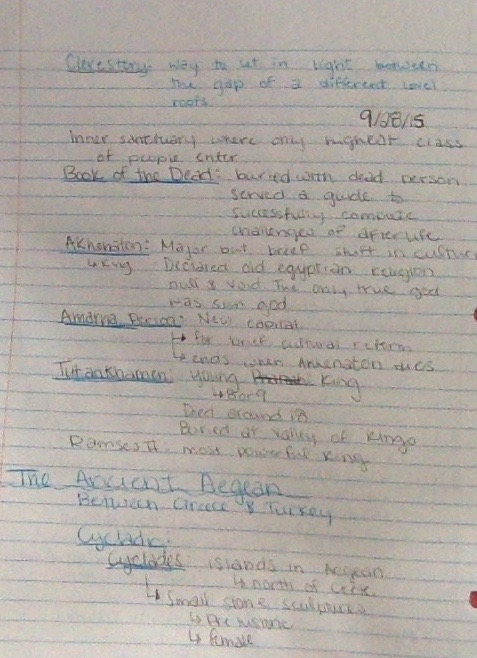 Clerestory: way to let in light between
the gap of 2 different level
roofs
9/28/15
Inner sanctuary where only highest class
of people enter
Book of the Dead: buried with dead person
served a guide to
successfully complete
challenges of afterlife
Akhenaton: Major but brief shift in culture
↳ King Declared old egyptian religion
null & void The only true god
was sun god
Amarna Period: New capital
↳ for brief cultural reform
↳ ends when Akhenaton dies
Tutankhamen: young King
↳ 8 or 9
Died around 18
Buried at Valley of Kings
Ramses II: most powerful King
The Ancient Aegean
Between Greece & Turkey
Cycladic:
Cyclades: islands in Aegean
↳ north of Crete
↳ Small stone sculptures
↳
↳ female